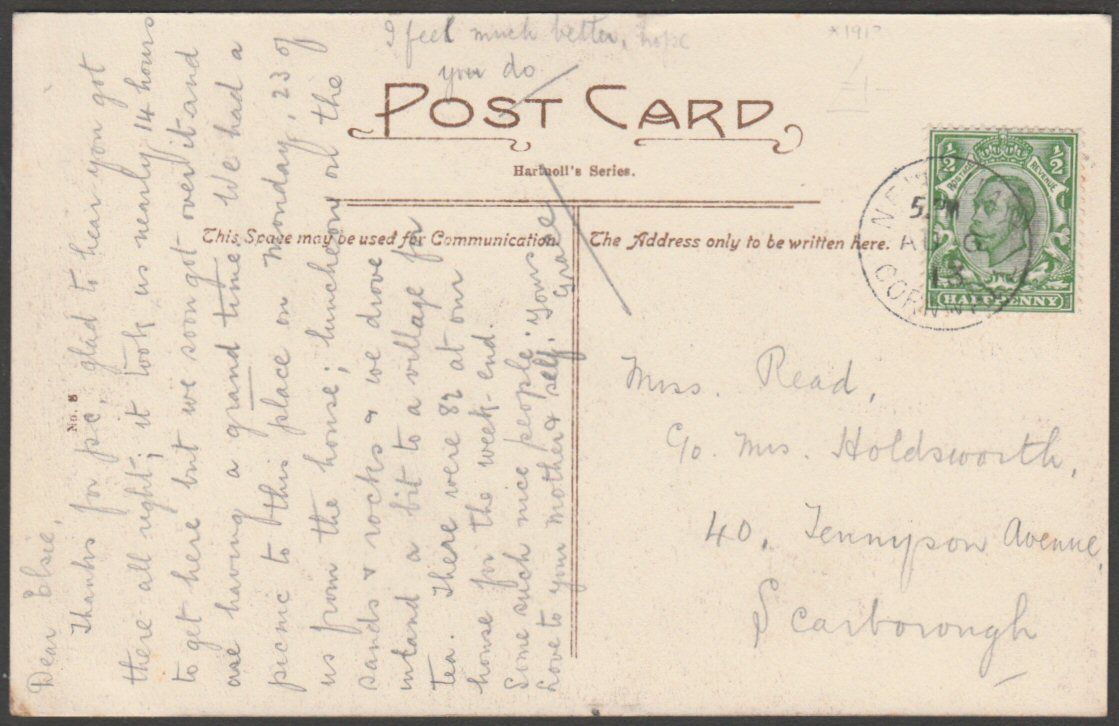 I feel much better, hope
you do
POST CARD
Hartnoll's Series.
This Space may be used for Communication.
The Address only to be written here.
No. 8
Dear Elsie,
Thanks for p.c. glad to hear you got
there all right; it took us nearly 14 hours
to get here but we soon got over it and
are having a grand time. We had a
picnic to this place on Monday, 23 of
us from the house; luncheon on the
sands & rocks & we drove
inland a bit to a village for
tea. There were 82 at our
house for the week-end.
Some such nice people. Yours
Love to your mother & self. Gracie
Miss. Read,
c/o Mrs. Holdsworth,
40, Tennyson Avenue,
Scarborough
½ ½
POSTAGE REVENUE
HALFPENNY
5 PM
AU
13
CORNWALL